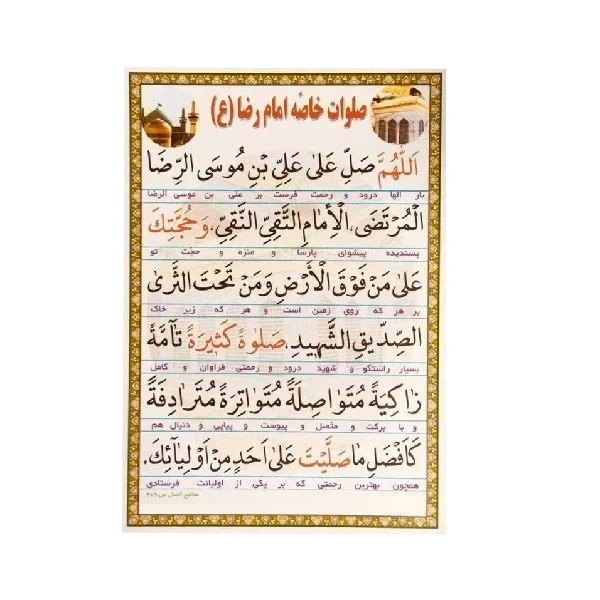 صلوات خاصّه امام رضا (ع)
اَللّٰهُمَّ صَلِّ عَلىٰ عَلِيِّ بْنِ مُوسَى الرِّضَا
بار الها درود و رحمت فرست بر علی بن موسی الرضا
الْمُرْتَضىٰ، الْاِمٰامِ التَّقِيِّ النَّقِيِّ، وَ حُجَّتِكَ
پسندیده پیشوای پارسا و منزه و حجت تو
عَلىٰ مَنْ فَوْقَ الْاَرْضِ وَ مَنْ تَحْتَ الثَّرىٰ
بر هر که روی زمین است و هر که زیر خاک
الصِّدّيقِ الشَّهيدِ، صَلوٰةً كَثيرَةً تٰآمَّةً
بسیار راستگو و شهید درود و رحمتی فراوان و کامل
زٰاكِيَةً مُتَوٰاصِلَةً مُتَوٰاتِرَةً مُتَرٰادِفَةً
و با برکت و متصل و پیوست و پیاپی و دنبال هم
كَاَفْضَلِ مٰا صَلَّيْتَ عَلىٰ اَحَدٍ مِنْ اَوْلِيٰآئِكَ.
همچون بهترین رحمتی که بر یکی از اولیائت فرستادی
مفاتیح الجنان ص ۹۷۹